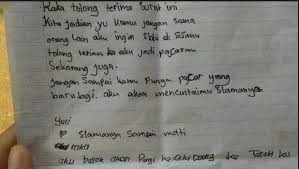 Kaka tolong terima surat ini
Kita Jadian yu kamu jangan sama
orang lain aku ingin
tolong terima ka aku jadi pacarmu
Sekarang Juga.
Jangan sampai kamu Punya pacar yang
baru lagi. aku akan mencintaimu Slamanya
Yuci
Slamanya Sampai mati
aku besok akan Pergi ke